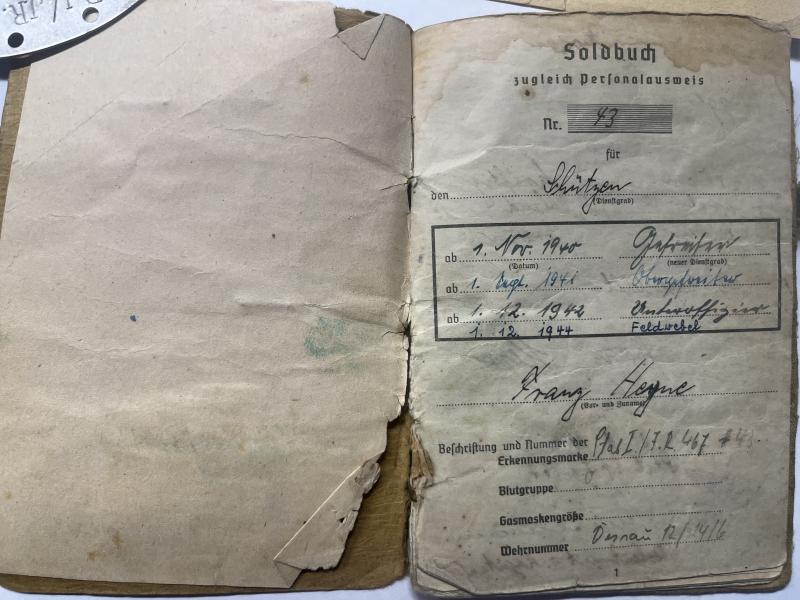 J.R.
Soldbuch
zugleich Personalausweis
Nr. 43
für
den Schützen
(Dienstgrad)
ab 1. Nov. 1940 Gefreiter
(Datum) (neuer Dienstgrad)
ab 1. Sept. 1941 Obergefreiter
ab 1. 12. 1942 Unteroffizier
1. 12. 1944 Feldwebel
Franz Heyne
(Vor- und Zuname)
Beschriftung und Nummer der
Erkennungsmarke I/J.R. 467
Blutgruppe O
Gasmaskengröße
Wehrnummer Dessau
1